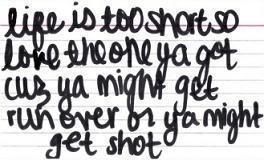 life is too short so
love the one ya got
cuz ya might get
run over or ya might
get shot